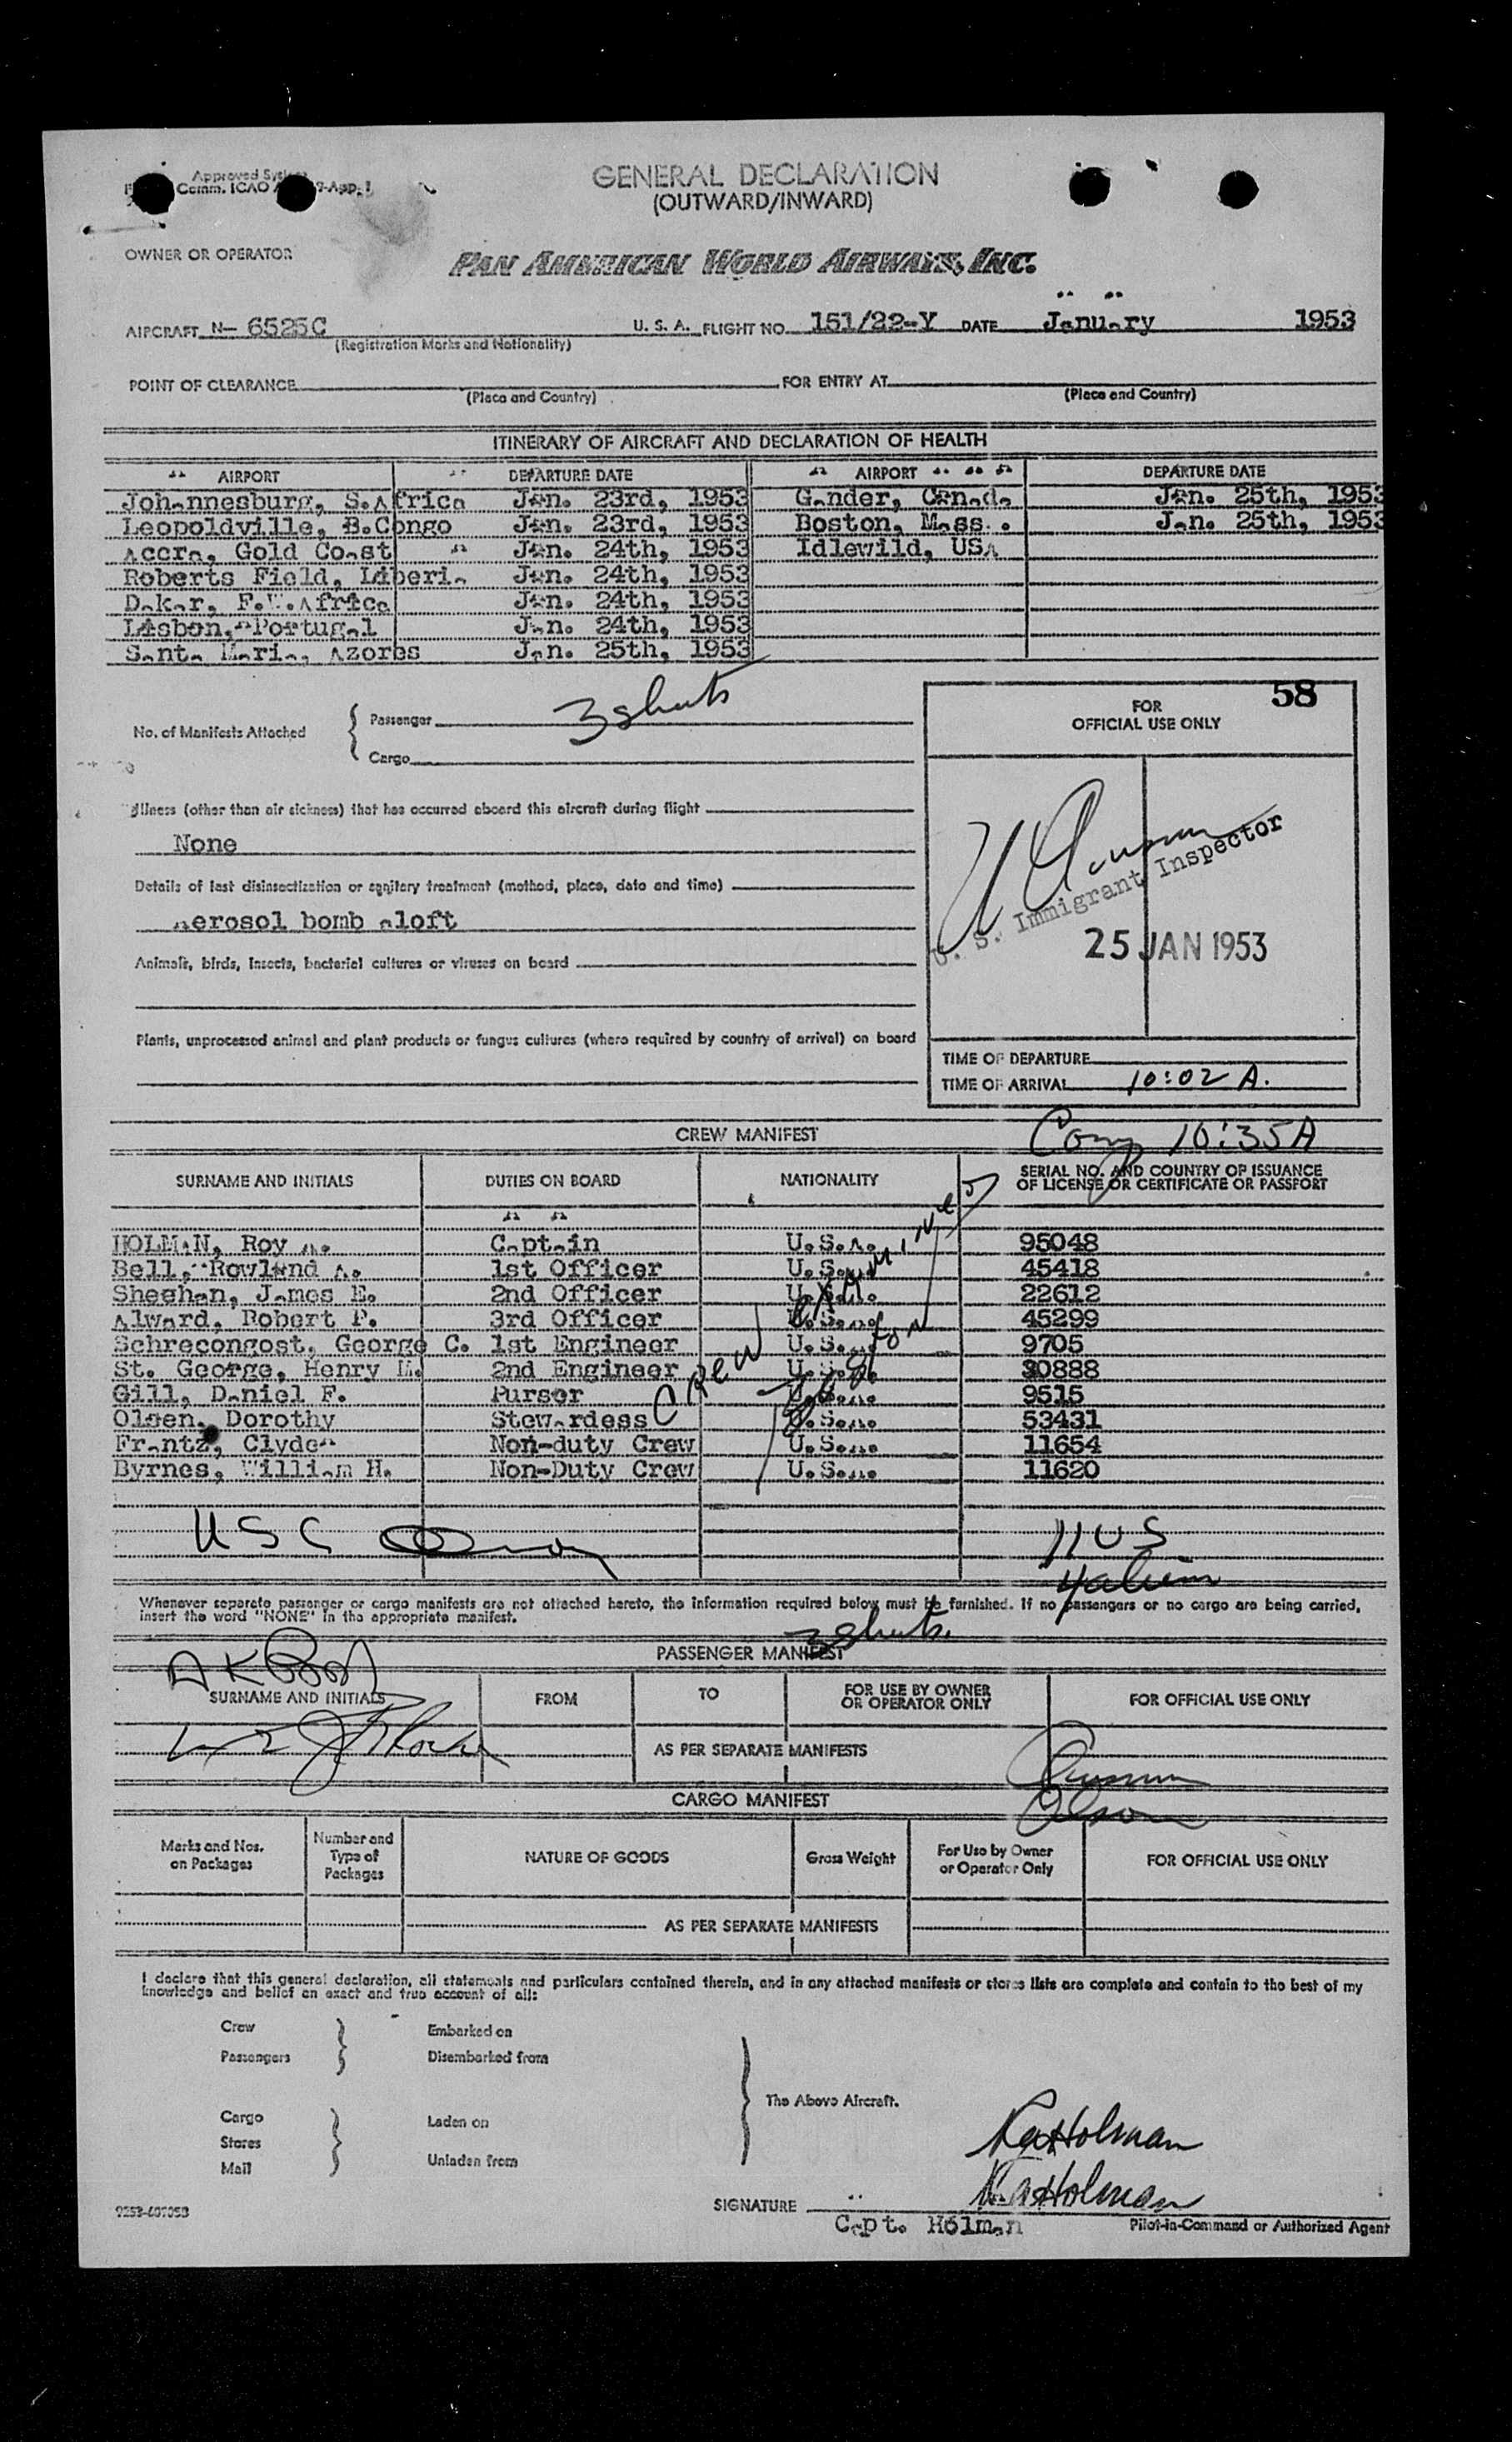 Approved System
Comm. ICAO 9-App. 1
GENERAL DECLARATION
(OUTWARD/INWARD)
OWNER OR OPERATOR
PAN AMERICAN WORLD AIRWAYS, INC.
AIRCRAFT N- 6525C U. S. A. FLIGHT NO. 151/22-Y DATE January 1953
(Registration Marks and Nationality)
POINT OF CLEARANCE FOR ENTRY AT
(Place and Country) (Place and Country)
ITINERARY OF AIRCRAFT AND DECLARATION OF HEALTH
AIRPORT DEPARTURE DATE AIRPORT DEPARTURE DATE
Johannesburg, S.Africa Jan. 23rd, 1953 Gander, Canada Jan. 25th, 1953
Leopoldville, B.Congo Jan. 23rd, 1953 Boston, Mass. Jan. 25th, 1953
Accra, Gold Coast Jan. 24th, 1953 Idlewild, USA
Roberts Field, Liberia Jan. 24th, 1953
Dakar, F.W.Africa Jan. 24th, 1953
Lisbon, Portugal Jan. 24th, 1953
Santa Maria, Azores Jan. 25th, 1953
58
No. of Manifests Attached
Passenger 3 sheets
Cargo
FOR
OFFICIAL USE ONLY
Illness (other than air sickness) that has occurred aboard this aircraft during flight
None
Details of last disinsectization or sanitary treatment (method, place, date and time)
Aerosol bomb aloft
U. S. Immigrant Inspector
25 JAN 1953
Animals, birds, insects, bacterial cultures or viruses on board
Plants, unprocessed animal and plant products or fungus cultures (where required by country of arrival) on board
TIME OF DEPARTURE
TIME OF ARRIVAL 10:02 A.
CREW MANIFEST
10:35A
SURNAME AND INITIALS DUTIES ON BOARD NATIONALITY SERIAL NO. AND COUNTRY OF ISSUANCE
OF LICENSE OR CERTIFICATE OR PASSPORT
HOLMAN, Roy A. Captain U.S.A. 95048
Bell, Rowland A. 1st Officer U.S.A. 45418
Sheehan, James E. 2nd Officer U.S.A. 22612
Alward, Robert P. 3rd Officer U.S.A. 45299
Schrecongost, George C. 1st Engineer U.S.A. 9705
St. George, Henry M. 2nd Engineer U.S.A. 30888
Gill, Daniel F. Purser U.S.A. 9515
Olsen, Dorothy Stewardess U.S.A. 53431
Frantz, Clyde Non-duty Crew U.S.A. 11654
Byrnes, William H. Non-Duty Crew U.S.A. 11620
Crew Examined
Boston
USC
11 US
4 alien
Whenever separate passenger or cargo manifests are not attached hereto, the information required below must be furnished. If no passengers or no cargo are being carried,
insert the word "NONE" in the appropriate manifest.
3 sheets.
PASSENGER MANIFEST
SURNAME AND INITIALS FROM TO FOR USE BY OWNER
OR OPERATOR ONLY FOR OFFICIAL USE ONLY
AS PER SEPARATE MANIFESTS
CARGO MANIFEST
Olson
Marks and Nos.
on Packages Number and
Type of
Packages NATURE OF GOODS Gross Weight For Use by Owner
or Operator Only FOR OFFICIAL USE ONLY
AS PER SEPARATE MANIFESTS
I declare that this general declaration, all statements and particulars contained therein, and in any attached manifests or stores lists are complete and contain to the best of my
knowledge and belief an exact and true account of all:
Crew Embarked on
Passengers Disembarked from
The Above Aircraft.
Cargo Laden on
Stores
Mail Unladen from
RA Holman
RA Holman
SIGNATURE
Capt. Holman Pilot-in-Command or Authorized Agent